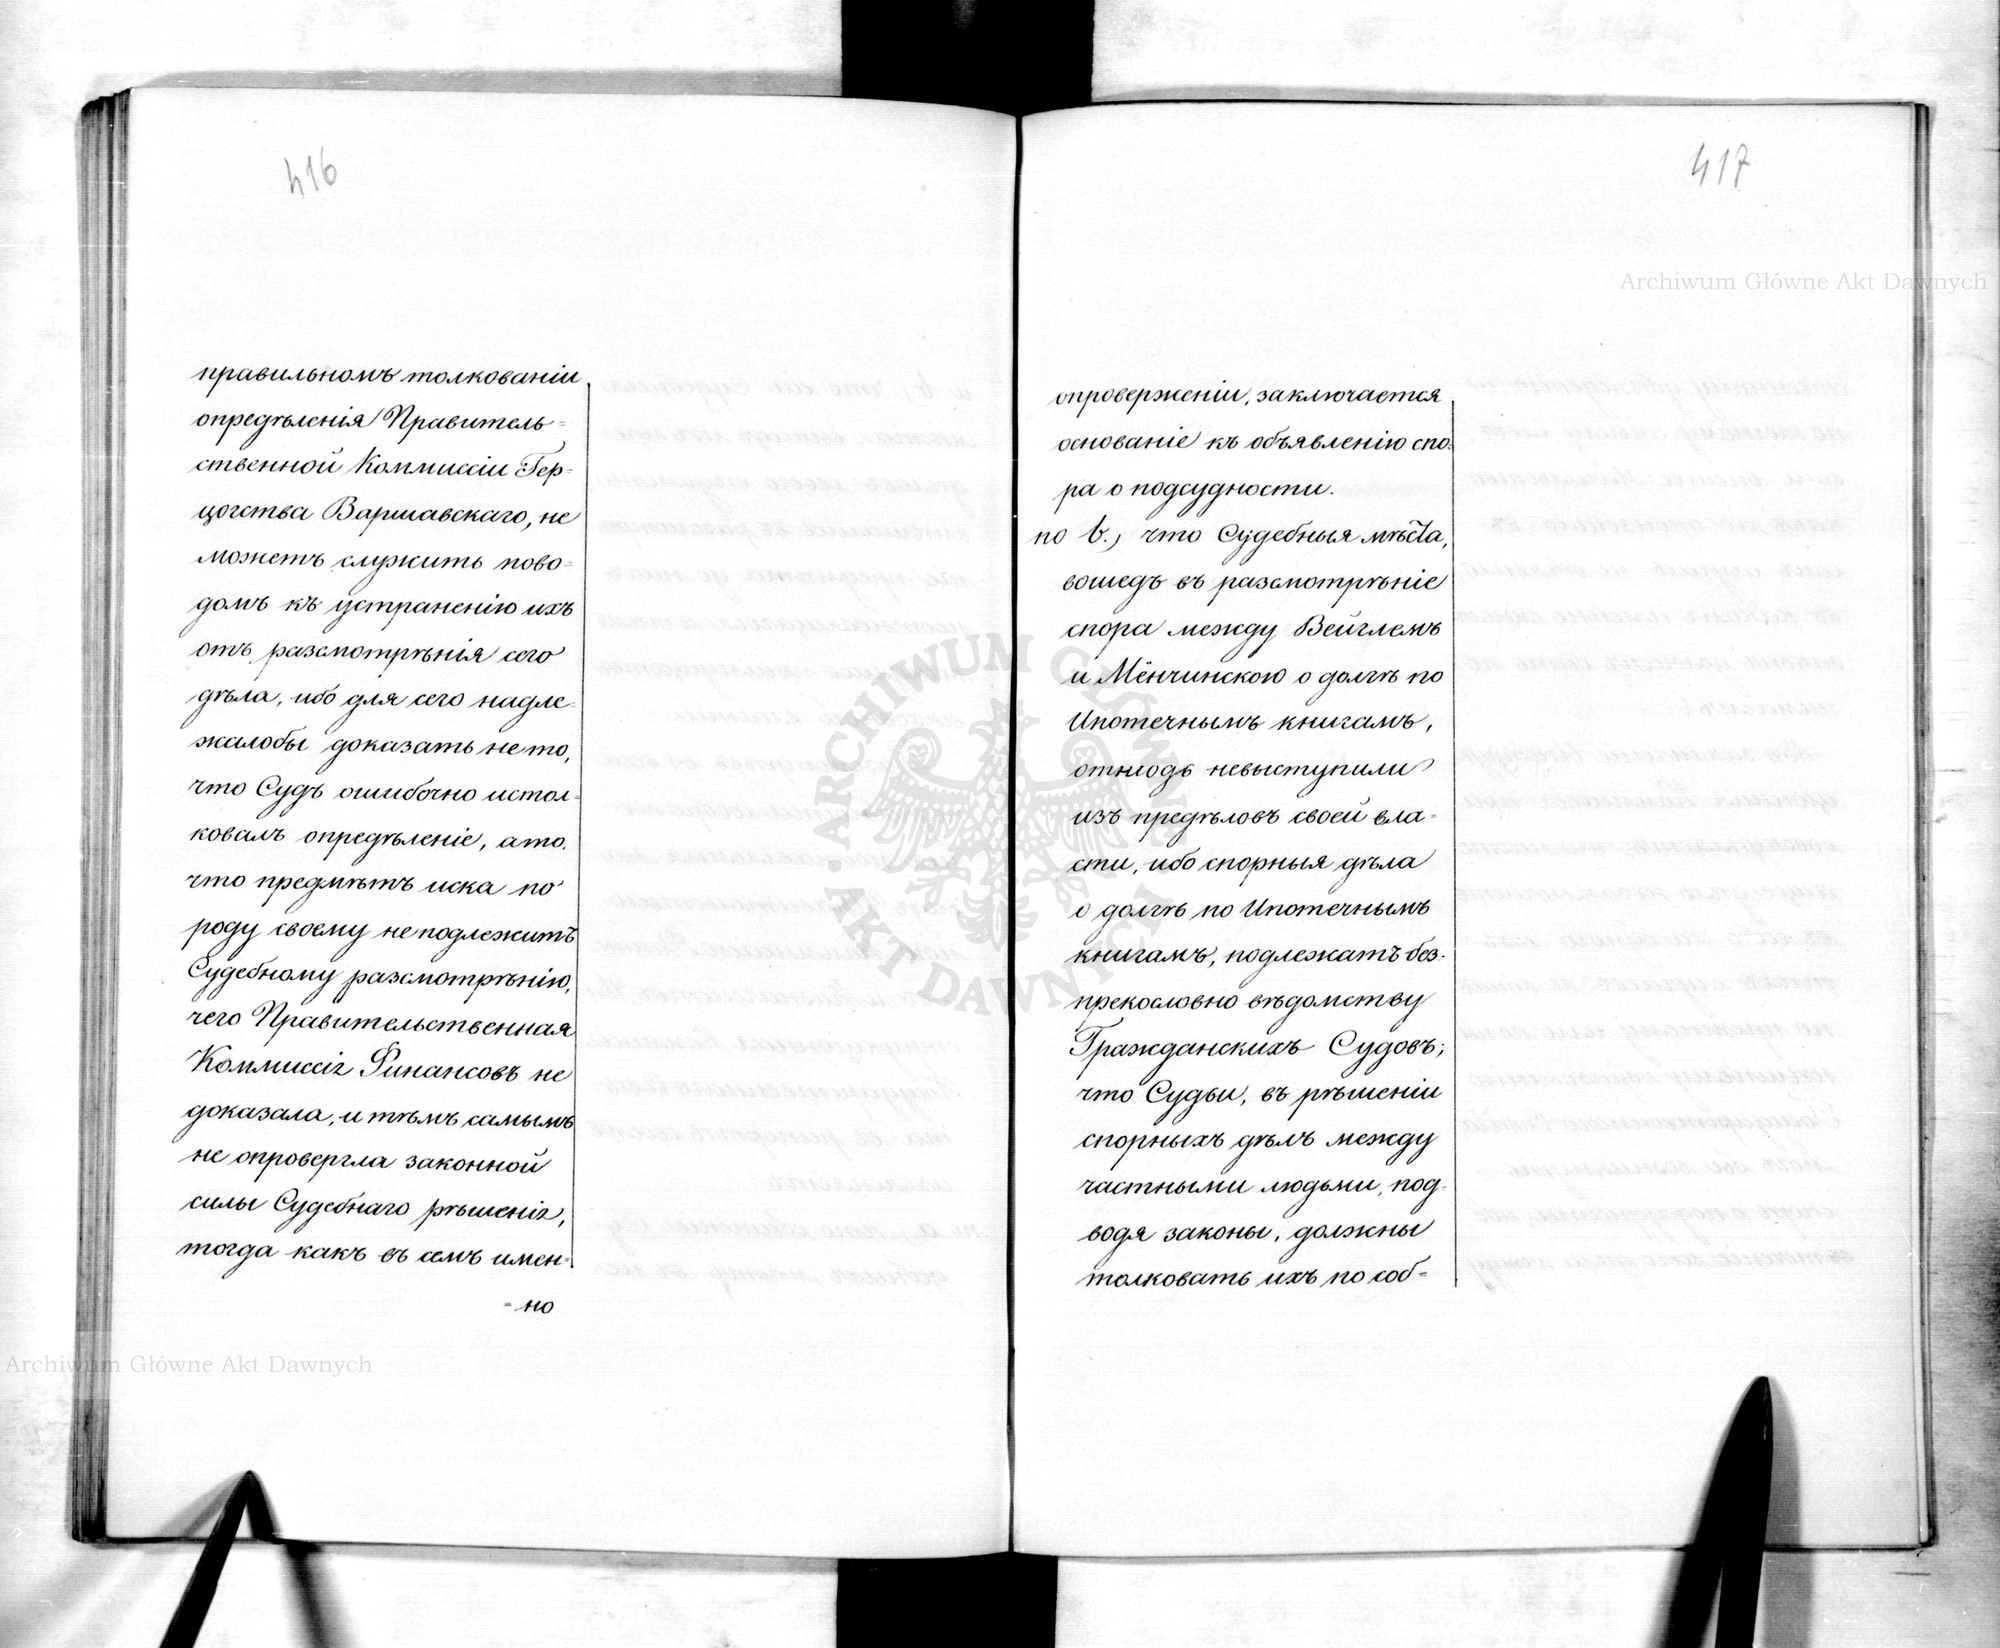 416
правильномъ толкованіи
опредѣленія Правитель=
ственной Коммиссіи Гер=
цогства Варшавскаго, не
можетъ служить пово=
домъ къ устраненію ихъ
отъ разсмотрѣнія сего
дѣла, ибо для сего надле=
жалобы доказать не то,
что Судъ ошибочно истол=
ковалъ опредѣленіе, а то,
что предмѣтъ иска по
роду своему не подлежитъ
Судебному разсмотрѣнію,
чего Правительственная
Коммиссія Финансовъ не
доказала, и тѣмъ самымъ
не опровергла законной
силы Судебнаго рѣшенія,
тогда какъ въ семъ имен=
=но
417
опроверженіи, заключается
основаніе къ объявленію спо=
ра о подсудности.
по b.) что Судебныя мѣста,
вошедъ въ разсмотрѣніе
спора между Вейглемъ
и Мёнчинскою о долгѣ по
Ипотечнымъ книгамъ,
отнюдь невыступили
изъ предѣловъ своей вла=
сти, ибо спорныя дѣла
о долгѣ по Ипотечнымъ
книгамъ, подлежатъ без=
прекословно вѣдомству
Гражданскихъ Судовъ;
что Судьи, въ рѣшеніи
спорныхъ дѣлъ между
частными людьми, под=
водя законы, должны
толковать ихъ по соб=
Archiwum Główne Akt Dawnych
Archiwum Główne Akt Dawnych
ARCHIWUM GŁÓWNE AKT DAWNYCH